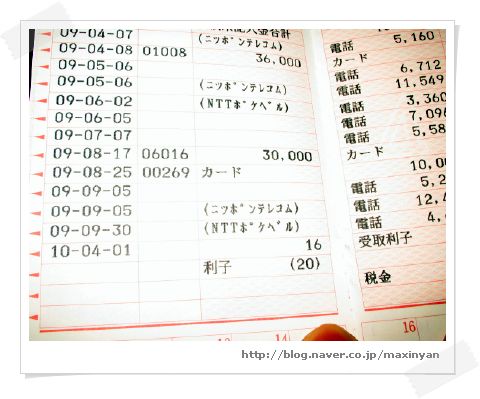 09-04-07 記入金合計
(ニッポンテレコム)
09-04-08 01008 36,000
09-05-06
09-05-06 (ニッポンテレコム)
09-06-02 (NTTポケベル)
09-06-05
09-07-07
09-08-17 06016 30,000
09-08-25 00269 カード
09-09-05
09-09-05 (ニッポンテレコム)
09-09-30 (NTTポケベル)
10-04-01 16
利子 (20)
電話 5,160
カード
電話 6,712
電話 11,549
電話 3,360
電話 7,096
カード
電話
電話
電話
受取利子
税金
13 14 16
http://blog.naver.co.jp/maxinyan